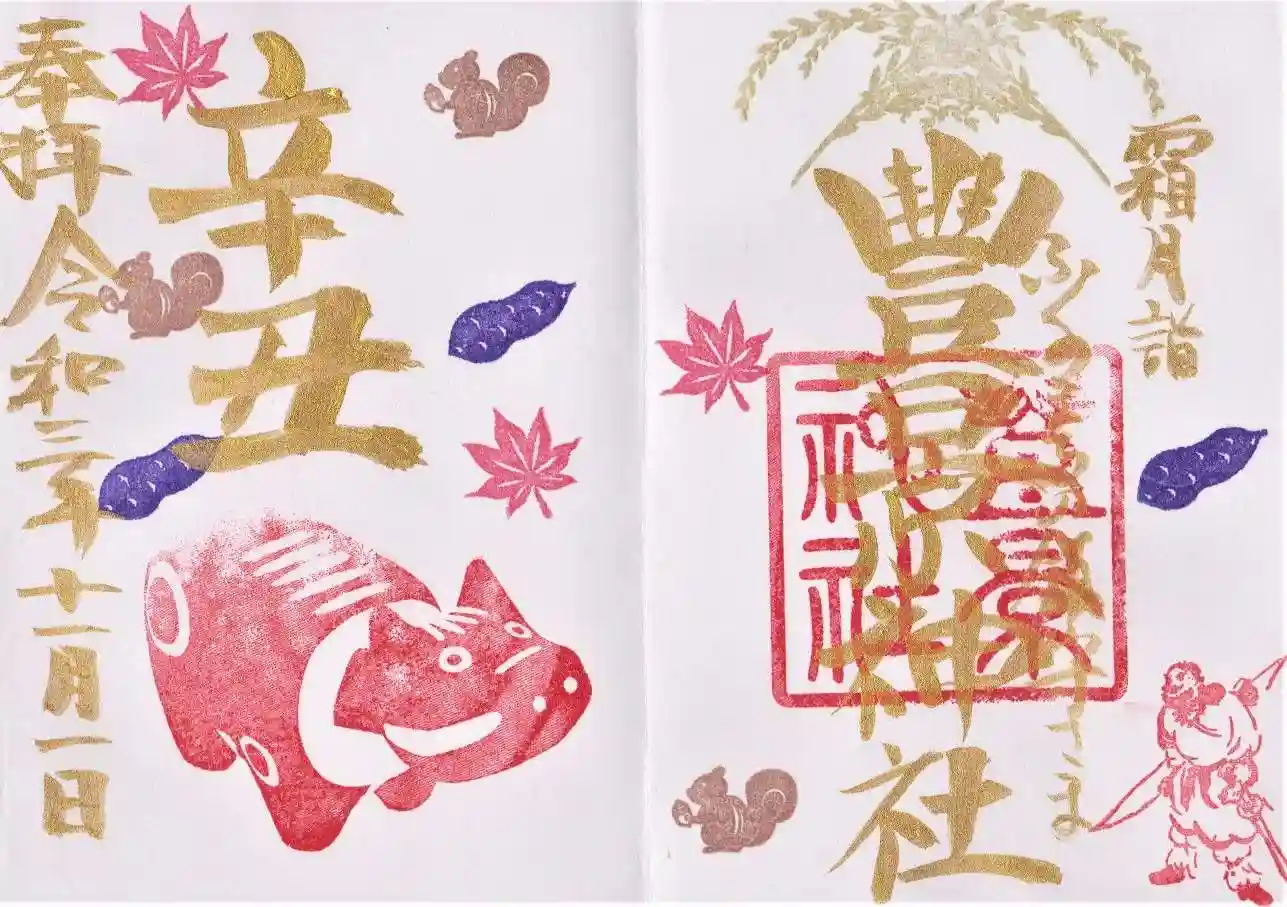 霜月詣
ふくさま
豐景神社
豊景神社
辛丑
奉拜令和三年十一月一日